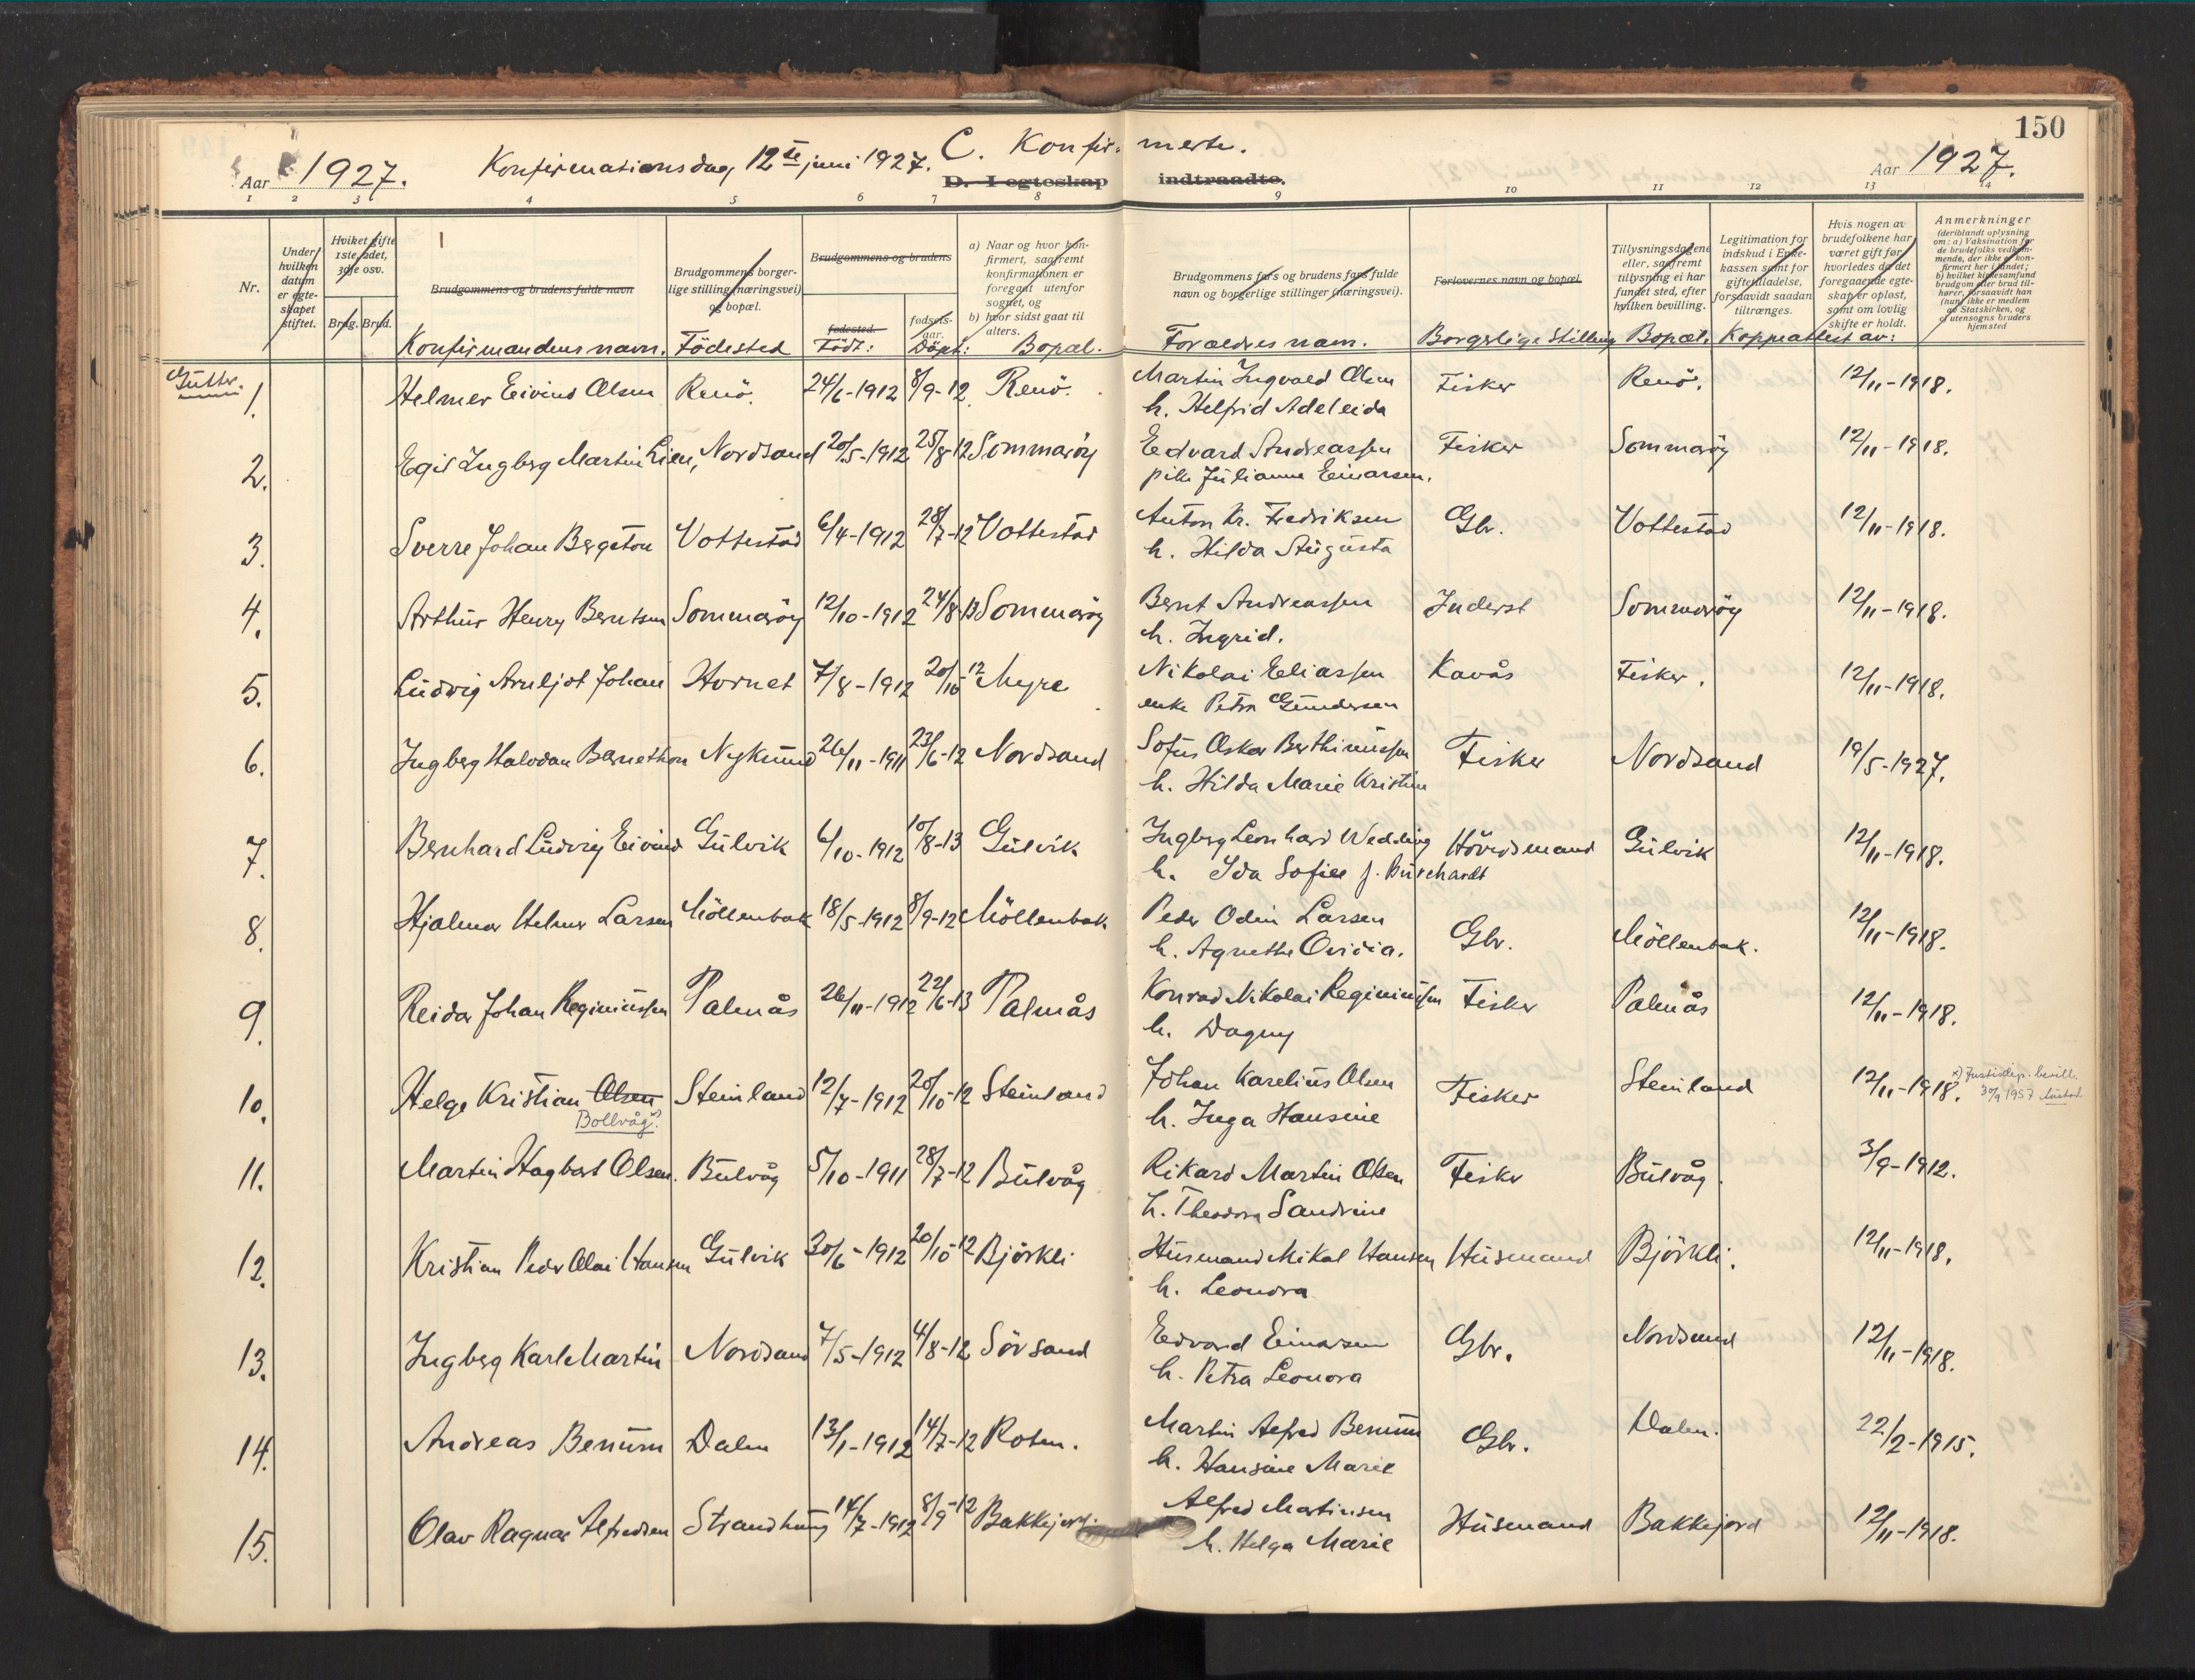 150
Aar 1927. Konfirmationsdag 12te juni 1927. C. Konfir- merte. Aar 1927.
D. I egteskap indtraadte.
1 2 3 4 5 6 7 8 9 10 11 12 13 14
Nr.
Under hvilken datum er egteskapet stiftet.
Hvilket gifte 1ste, 2det, 3dje osv.
Brdg. Brud.
Brudgommens og brudens fulde navn
Brudgommens borgerlige stilling (næringsvei) og bopæl.
Brudgommens og brudens
fødested.
fødselsaar.
a) Naar og hvor konfirmert, saafremt konfirmationen er foregaat utenfor sognet, og
b) hvor sidst gaat til alters.
Brudgommens fars og brudens fars fulde navn og borgerlige stillinger (næringsvei).
Forlovernes navn og bopæl.
Tillysningsdagene eller, saafremt tillysning ei har fundet sted, efter hvilken bevilling.
Legitimation for indskud i Enkekassen samt for giftetilladelse, forsaavidt saadan tiltrænges.
Hvis nogen av brudefolkene har været gift før, hvorledes da det foregaaende egteskap er opløst, samt om lovlig skifte er holdt.
Anmerkninger
(deriblandt oplysning om: a) Vaksination for de brudefolks vedkommende, der ikke er konfirmert her i landet; b) hvilket kirkesamfund brudgom eller brud tilhører, forsaavidt han (hun) ikke er medlem av Statskirken, og c) utensogns bruders hjemsted
Konfirmandens navn. Födested Födt: Döpt: Bopæl. Forældres navn. Borgerlige Stilling Bopæl. Koppeattest av:
Gutter.
1. Helmer Eivind Olsen Renö. 24/6-1912 8/9-12 Renö. Martin Ingvald Olsen Fisker Renö. 12/11-1918.
h. Helfrid Adeleida
2. Egil Ingberg Martin Lien, Nordsand 20/5-1912 25/8-12 Sommaröy Edvard Andreassen Fisker Sommaröy 12/11-1918.
pike Julianne Einarsen.
3. Sverre Johan Bergeton Vottestad 6/4-1912 28/7-12 Vottestad Anton Kr. Fredriksen Gbr. Vottestad 12/11-1918.
h. Hilda Augusta
4. Arthur Henry Berntsen Sommaröy 12/10-1912 24/8-13 Sommaröy Bernt Andreassen Inderst Sommaröy 12/11-1918.
h. Ingrid.
5. Ludvig Arnljot Johan Hornet 7/8-1912 20/10 12 Myre Nikolai Eliassen Kavås Fisker. 12/11-1918.
enke Petra Gundersen
6. Ingberg Halvdan Bernethon Nyksund 26/11-1911 23/6-12 Nordsand Sofus Oskar Berthinussen Fisker Nordsand 19/5-1927.
h. Hilda Marie Kristine
7. Bernhard Ludvig Eivind Gulvik 6/10-1912 10/8-13 Gulvik Ingberg Leonhard Wedding Hövedsmand Gulvik 12/11-1918.
h. Ida Sofie f. Burchardt
8. Hjalmar Helmer Larsen Möllenbak 18/5-1912 8/9-12 Möllenbak Peder Odin Larsen Gbr. Möllenbak. 12/11-1918.
h. Agnethe Ovidia.
9. Reidar Johan Reginiussen Palmås 26/11-1912 22/6-13 Palmås Konrad Nikolai Reginiussen Fisker Palmås 12/11-1918.
h. Dagny
10. Helge Kristian Olsen Steinland 12/7-1912 20/10-12 Steinland Johan Karelius Olsen Fisker Steinland 12/11-1918. x) Justisdep. bevill.
Bollvåg x) h. Inga Hansine 30/9 1957
11. Martin Hagbart Olsen. Bulvåg 5/10-1911 28/7-12 Bulvåg Rikard Martin Olsen Fisker Bulvåg. 3/9-1912.
h. Theodora Sandrine
12. Kristian Peder Olai Hansen Gulvik 30/6-1912 20/10-12 Björkli Husmand Mikal Hansen Husmand Björkli. 12/11-1918.
h. Leonora
13. Ingberg Karl Martin Nordsand 7/5-1912 4/8-12 Sörsand Edvard Einarsen Gbr. Nordsand 12/11-1918.
h. Petra Leonora
14. Andreas Benum Dalen 13/1-1912 14/7-12 Roten. Martin Alfred Benum Gbr. Dalen. 22/2-1915.
h. Hansine Marie
15. Olav Ragnar Alfredsen Strandhaug 14/7-1912 8/9-12 Bakkejord. Alfred Martinsen Husmand Bakkejord 12/11-1918.
h. Helga Marie